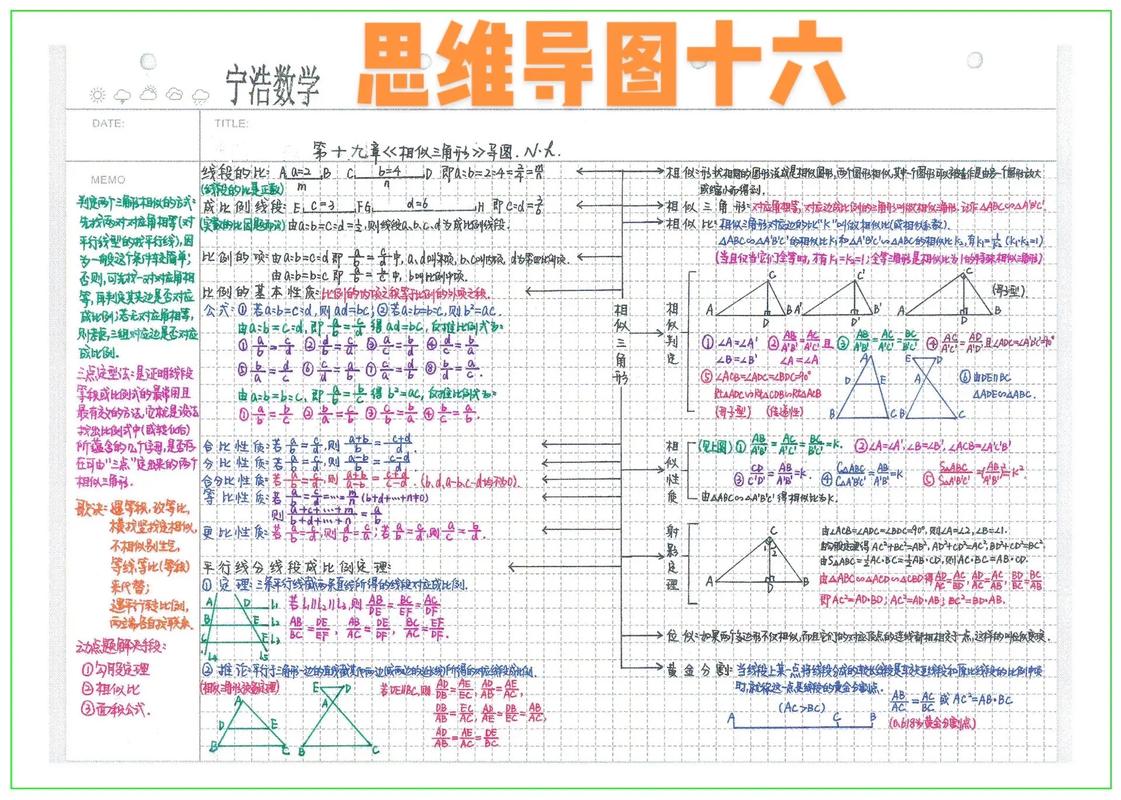 思维导图十六
宁浩数学
DATE:
TITLE:
第十九章《相似三角形》导图.N·L.
MEMO
判定两个三角形相似的方式:
先找两对对应角相等(对
平行线型的找平行线),因
为一般这个条件较简单;
否则,可先找一对对应角相
等,再判定其夹边是否对应
成比例;若无对应角相等,
则考虑三组对应边是否对应
成比例.
三点定型法:是证明线段
等积或比例式的最常用且
最有效的方法,它就是设法
找出比例式中(或转化的)
所蕴含的几个字母,是否存
在可由“三点”定出来的两个
相似三角形.
歌诀:遇等积,改等比,
横找竖找定相似,
不相似别生气,
等线等比(等积)
来代替;
遇平行,转比例,
两端各自找联系.
动点题解决手段:
①勾股定理
②相似比
③面积公式.
线段的比: A a=2 B C b=4 D 即a:b=2:4=2/4=m/n
m n
(线段的比是正数)
成比例线段: E c=3 F G d=6 H 即c:d=3/6
由a:b=c:d=1/2,则线段a、b、c、d为成比例线段.
比例的项: 由a:b=c:d 即a/b=c/d中,a、d叫外项,b、c叫内项,d为第四比例项.
由a:b=b:c 即a/b=b/c中,b叫比例中项.
比例的基本性质:比例的内项之积等于比例的外项之积.
公式:①若a:b=c:d,则ad=bc;②若a:b=b:c,则b²=ac.
由a:b=c:d,即a/b=c/d得ad=bc,反推比例式为:
①a/b=c/d ②d/b=c/a ③a/c=b/d ④d/c=b/a
⑤b/a=d/c ⑥b/d=a/c ⑦c/a=d/b ⑧c/d=a/b.
由a:b=b:c,即a/b=b/c得b²=ac,反推比例式为:
①a/b=b/c ②b/a=c/b ③c/b=b/a ④b/c=a/b.
合比性质:若a/b=c/d,则(a+b)/b=(c+d)/d.
分比性质:若a/b=c/d,则(a-b)/b=(c-d)/d
合分比性质:若a/b=c/d,则(a+b)/(a-b)=(c+d)/(c-d).(b,d,a-b,c-d均不为0).
等比性质:若a/b=c/d=…=m/n(b+d+…+n≠0)
则(a+c+…+m)/(b+d+…+n)=a/b
更比性质:若a/b=c/d,则d/b=c/a;若a/b=c/d,则a/c=b/d.
平行线分线段成比例定理:
①定理:三条平行线截两条直线所得的线段对应成比例.
A D L₁
B E L₂
C F L₃
L₄ L₅
若l₁∥l₂∥l₃,则AB/DE=BC/EF=AC/DF
AB/BC=DE/EF,AB/AC=DE/DF,BC/AC=EF/DF.
②推论:平行于三角形一边的直线截其他两边(或两边的延长线)所得的对应线段成比例.
(相似三角形预备定理)
若DE∥BC,则AD/DB=AE/EC,AD/AB=AE/AC,
DB/AB=EC/AC,AD/AE=DB/EC=AB/AC,
AD/AB=AE/AC=DE/BC
A D E B C
E D A B C
相似三角形
相似:形状相同的图形说成是相似图形,两个图形相似,其中一个图形可以看作是由另一个图形放大
或缩小而得到.
相似三角形:对应角相等,对应边成比例的三角形叫做相似三角形.记作△ABC∽△A'B'C'.
相似比:相似三角形对应边的比“k”叫做相似比(或相似系数).
△ABC∽△A'B'C'的相似比k₁和△A'B'C'∽△ABC的相似比k₂,有k₁=1/k₂(k₁·k₂=1)
(当且仅当它们全等时,才有k₁=k₂=1;全等三角形是相似比为1的特殊相似三角形)
相似判定
A D B C
A' D' B' C'
A D B C
(母子型)
①∠A=∠A' ∠B=∠B'
②AB/A'B'=AC/A'C'且∠A=∠A'
③AB/A'B'=AC/A'C'=BC/B'C'
④AC/A'C'=AD/A'D'且∠ADC=∠A'D'C'=90°
⑤∠ACB=∠ADC=∠BDC=90°
则△ADC∽△CDB∽△ACB
(母子型) (传递性)
A D E B C
E D A B C
⑥由DE∥BC
△ADE∽△ABC.
相似性质
(见上图)①AB/A'B'=AC/A'C'=BC/B'C'=k. ②∠A=∠A',∠B=∠B',∠ACB=∠A'C'B'
③CD/C'D'=AB/A'B'=k. ④C△ABC/C△A'B'C'=AB/A'B'=k ⑤S△ABC/S△A'B'C'=(AB/A'B')²=k².
由△ABC∽△A'B'C'得相似比为k.
射影定理
A D B C 1 2
由∠ACB=∠ADC=∠BDC=90°,则∠A=∠2,∠B=∠1.
由勾股定理得AC²+BC²=AB²,AD²+CD²=AC²,BD²+CD²=BC²
由S△ABC=1/2AC·BC=1/2AB·CD,则AC·BC=AB·CD.
由△ABC∽△ACD∽△CBD得AD/AC=AC/AB,AD/CD=CD/BD,BD/BC=BC/AB
即AC²=AD·AB;BC²=BD·AB.
位似:如果两个多边形不仅相似,而且它们的对应顶点的连线都相交于一点,这样的叫位似变换.
黄金分割:当线段上某一点将线段分成的较长线段是较短线段和原来线段的比例中项
时,就称这一点是线段的黄金分割点.
(AC>BC)
A C B
AB/AC=AC/BC或AC²=AB·BC
(0.618为黄金分割点)